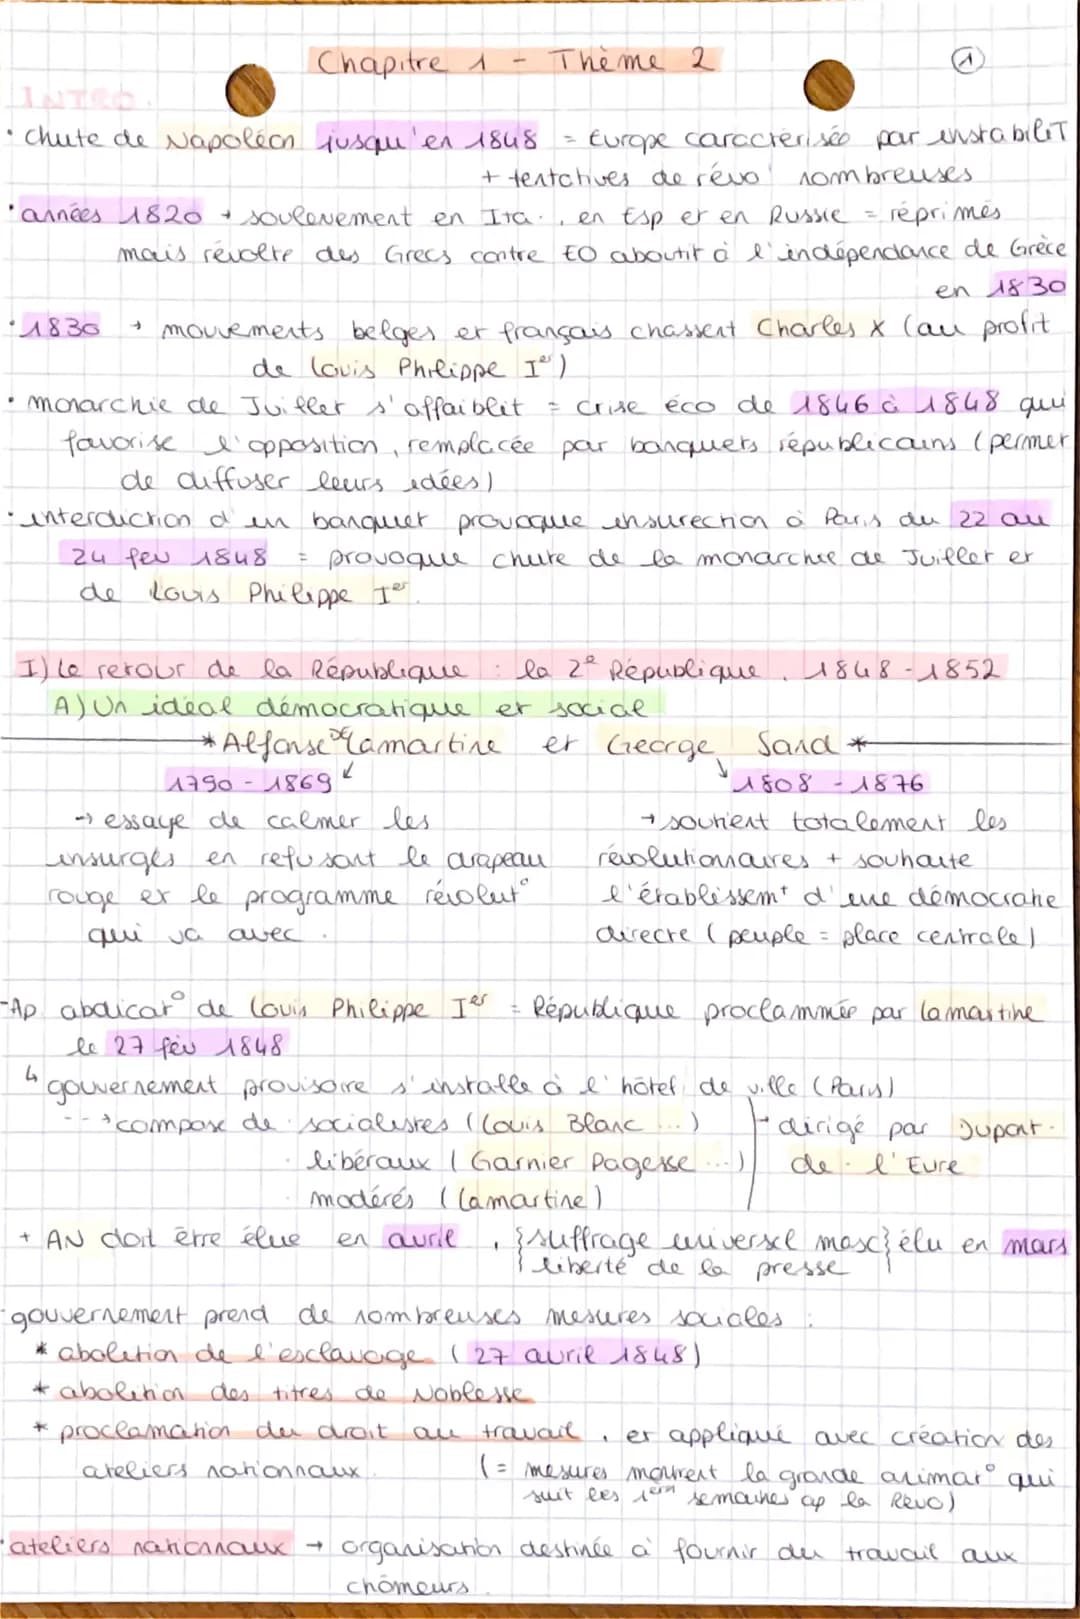 Chapitre 1 - Thème 2
①
INTRO.
• chute de Napoléon jusqu'en 1848 = Europe caractérisée par instabiliT
+ tentatives de révo° nombreuses
• années 1820 → soulevement en Ita., en Esp et en Russie = réprimés
mais révolte des Grecs contre EO aboutit à l'indépendance de Grèce
en 1830
• 1830 → mouvements belges et français chassent Charles X (au profit
de Louis Philippe Ier)
• monarchie de Juillet s'affaiblit = crise éco de 1846 à 1848 qui
favorise l'opposition, remplacée par banquets républicains (permet
de diffuser leurs idées)
• interdiction d'un banquet provoque insurection à Paris du 22 au
24 fev 1848 = provoque chute de la monarchie de Juillet et
de Louis Philippe Ier.
I) Le retour de la République : la 2e République, 1848-1852
A) Un idéal démocratique et social
* Alfonse de Lamartine et George Sand *
1790 - 1869
1808 - 1876
→ essaye de calmer les
insurgés en refusant le drapeau
rouge et le programme révolut°
qui va avec.
→ soutient totalement les
révolutionnaires + souhaite
l'établissemt d'une démocratie
directe (peuple = place centrale)
- Ap abdicat° de Louis Philippe Ier = République proclammée par Lamartine
le 27 fév 1848
↳ gouvernement provisoire s'installe à l'hôtel de ville (Paris)
--→ compose de · socialistes (Louis Blanc ...)
· libéraux (Garnier Pagesse ...)
· modérés (Lamartine)
→ dirigé par Dupont-
de-l'Eure
+ AN doit être élue en avril, {suffrage universel masc} élu en mars
liberté de la presse
- gouvernement prend de nombreuses mesures sociales :
* abolition de l'esclavage (27 avril 1848)
* abolition des titres de Noblesse
* proclamation du droit au travail, et appliqué avec création des
ateliers nationnaux.
(= mesures montrent la grande animat° qui
suit les 1ères semaines ap la Révo)
• ateliers nationnaux → organisation destinée à fournir du travail aux
chômeurs.